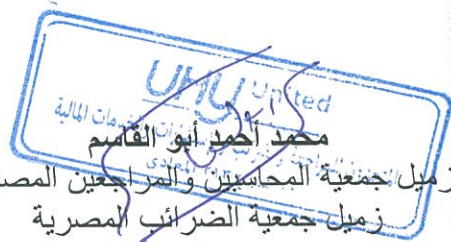 UHY United
محمد أحمد أبو القاسم
زميل جمعية المحاسبين والمراجعين المصر
زميل جمعية الضرائب المصرية